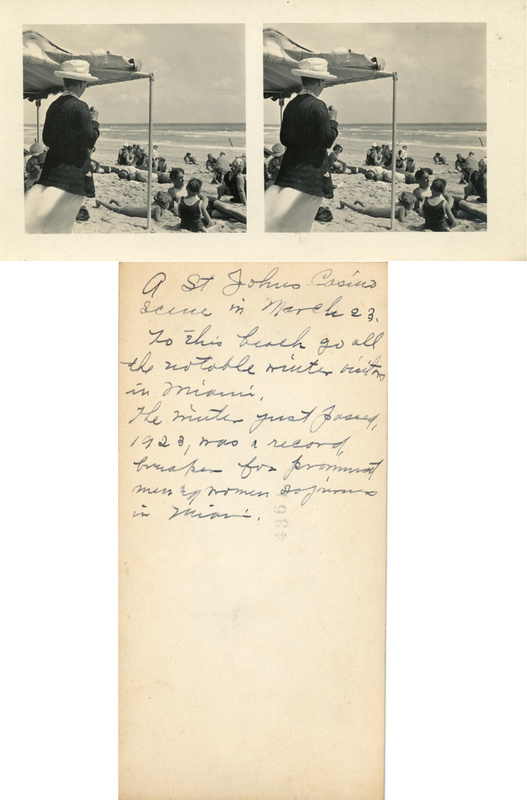 A St Johns Casino
scene in March 23.
To this beach go all
the notable winter visitors
in Miami.
The winter just passed,
1923, was a record
breaker for prominent
men & women sojourns
in Miami.
4364